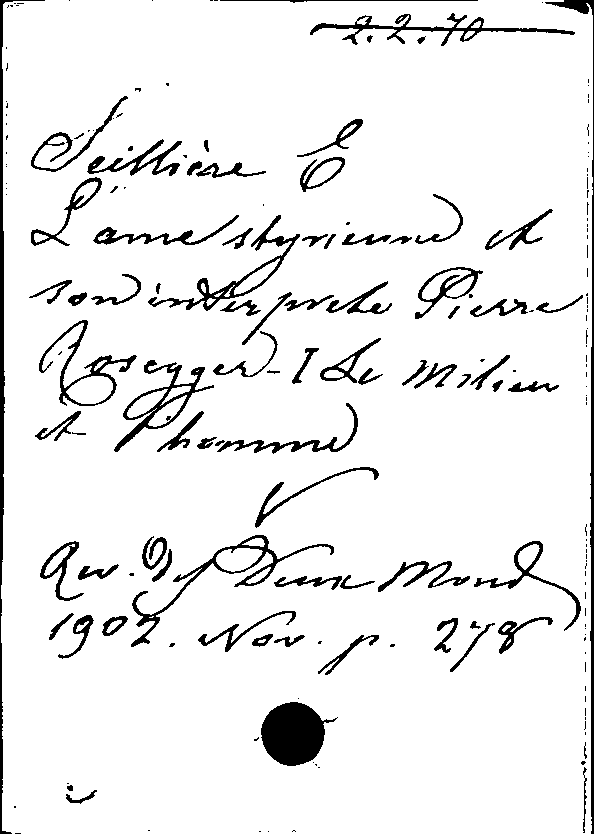 2.2.70
Seillière E
L'ame styrienne et
son interprete Pierre
Rosegger - I Le Milieu
et l'homme
Rev. Des Deux Mond
1902. Nov. p. 278